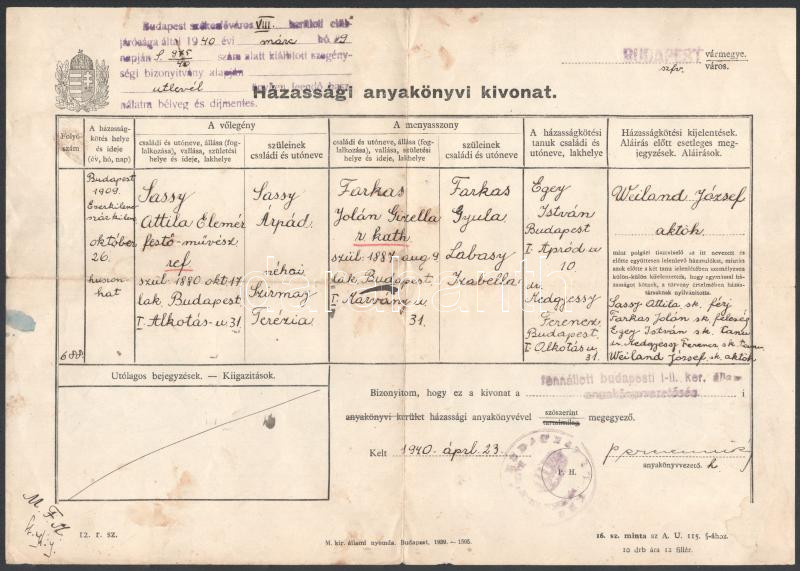 Budapest székesfőváros VIII. kerületi elöl-
járósága által 1940 évi márc hó 19
napján S szám alatt kiállított szegény-
ségi bizonyítvány alapján
utlevél ügyben leendő hasz-
nálatra bélyeg és díjmentes.
BUDAPEST vármegye.
szfv. város.
Házassági anyakönyvi kivonat.
Folyó-
szám
A házasság-
kötés helye
és ideje
(év, hó, nap)
A vőlegény
családi és utóneve, állása (fog-
lalkozása), vallása, születési
helye és ideje, lakhelye
szüleinek
családi és utóneve
A menyasszony
családi és utóneve, állása (fog-
lalkozása), vallása, születési
helye és ideje, lakhelye
szüleinek
családi és utóneve
A házasságkötési
tanuk családi és
utóneve, lakhelye
Házasságkötési kijelentések.
Aláírás előtt esetleges meg-
jegyzések. Aláírások.
688
Budapest
1909.
Ezerkilenc-
száz kilenc
október
26.
huszon-
hat
Sassy
Attila Elemér
festő-művész
ref
szül 1880 okt 17
lak. Budapest
I. Alkotás-u 31.
Sassy
Árpád
néhai
Szirmay
Terézia
Farkas
Jolán Gizella
r. kath
szül. 1887 aug 9
lak. Budapest
I. Márvány u
31.
Farkas
Gyula
Labasy
Izabella
Egey
István
Budapest
I. Apród u
10
dr.
Kedgyessy
Ferenc
Budapest.
I. Alkotás u
31.
Weiland József
aktöh.
mint polgári tisztviselő az itt nevezett és
előtte együttesen jelenlévő házasulókat, miután
azok előtte a két tanu jelenlétében személyesen
külön-külön kijelentették, hogy egymással házas-
ságot kötnek, a törvény értelmében házas-
társaknak nyilvánította.
Sassy Attila sk. férj
Farkas Jolán sk. feleség
Egey István sk. tanu
dr Kedgyessy Ferenc sk. tanu
Weiland József sk. aktöh
darabanth
Utólagos bejegyzések. — Kiigazítások.
Bizonyítom, hogy ez a kivonat a fennállott budapesti I-ü. ker. állami
anyakönyvvezetőség i
anyakönyvi kerület házassági anyakönyvével szószerint
tartalmilag megegyező.
Kelt 1940. ápril. 23.
P. H.
anyakönyvvezető h.
M. F. M.
12. r. sz.
M. kir. állami nyomda. Budapest, 1939. — 1595.
16. sz. minta az A. U. 115. §-ához.
10 drb ára 12 fillér.